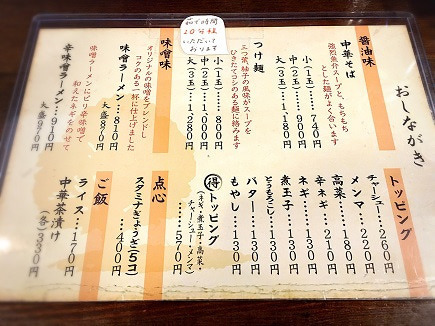 おしながき
醤油味
中華そば
強烈魚介スープと、もちもち
とした麺がよく合います
小(1玉)740円
中(2玉)900円
大(3玉)1,180円
つけ麺
三つ葉、柚子の風味がスープを
ひきたてコシのある麺に絡みます
小(1玉)800円
中(2玉)1,000円
大(3玉)1,280円
茹で時間
20分程
いただいて
おります
味噌味
オリジナルの味噌をブレンドし
コクのある一杯に仕上げました
味噌ラーメン…810円
大盛870円
味噌ラーメンにピリ辛味噌で
和えたネギをのせて
辛味噌ラーメン…910円
大盛970円
トッピング
チャーシュー…260円
メンマ…220円
高菜…180円
辛ネギ…210円
ネギ…130円
煮玉子…130円
とうもろこし…130円
バター…130円
もやし…130円
得トッピング
ネギ・煮玉子・高菜・
チャーシュー・メンマ
…570円
点心
スタミナぎょうざ(5コ)
…400円
ご飯
ライス…170円
中華茶漬け
(各)330円